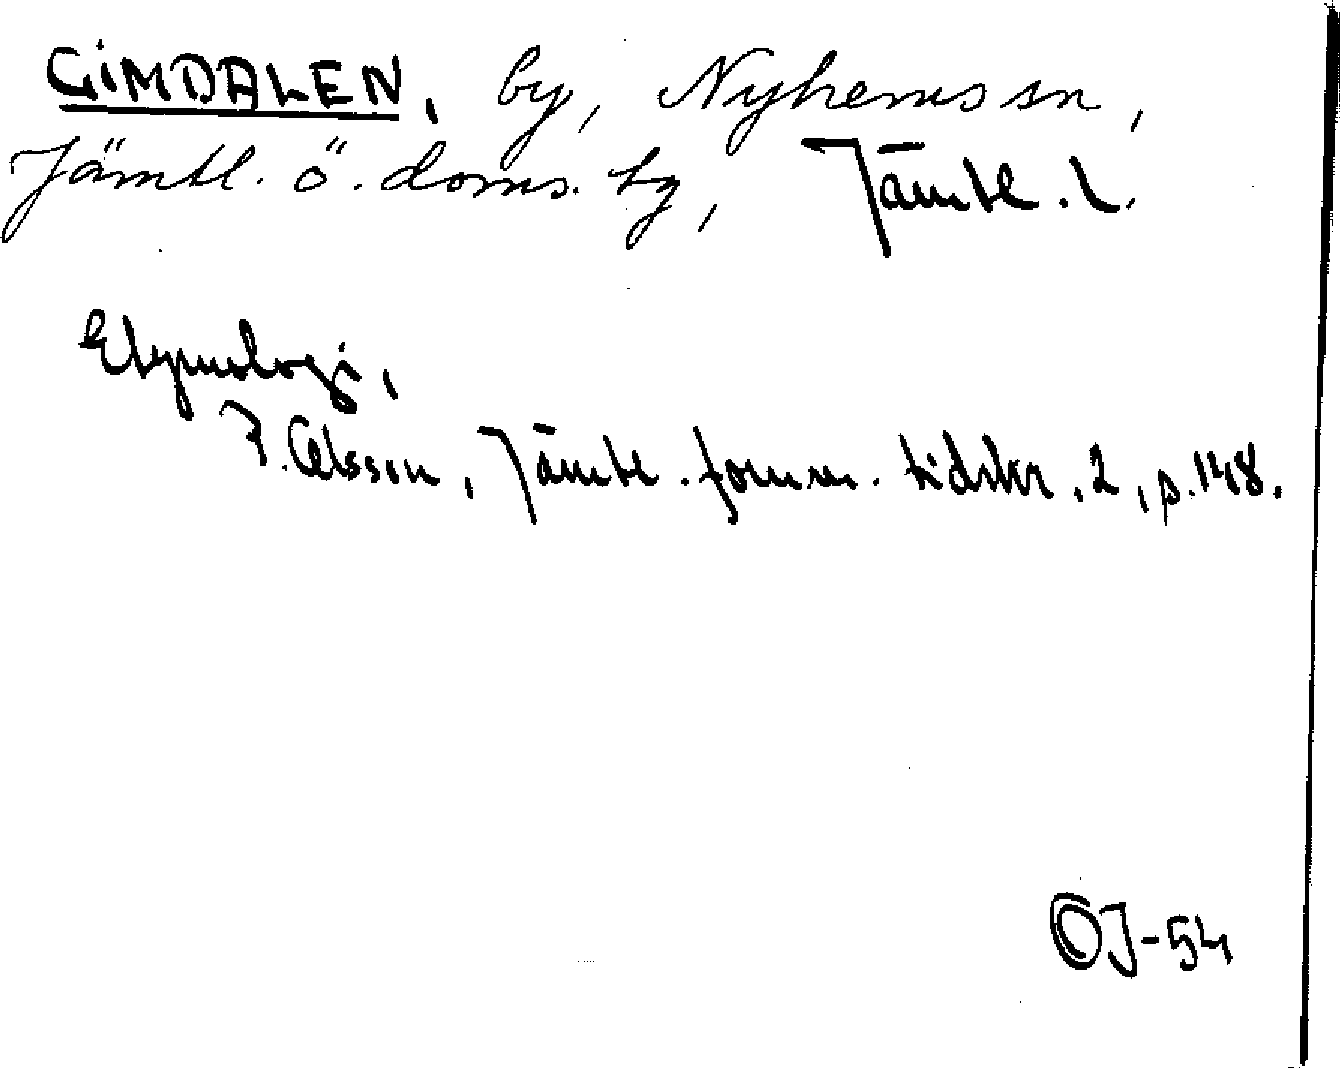 GIMDALEN, by, Nyhems sn,
Jämtl. ö. doms. tg, Jämtl. l.
Etymologi,
P. Olsson, Jämtl. fornm. tidskr. 2, p. 148.
OJ-54